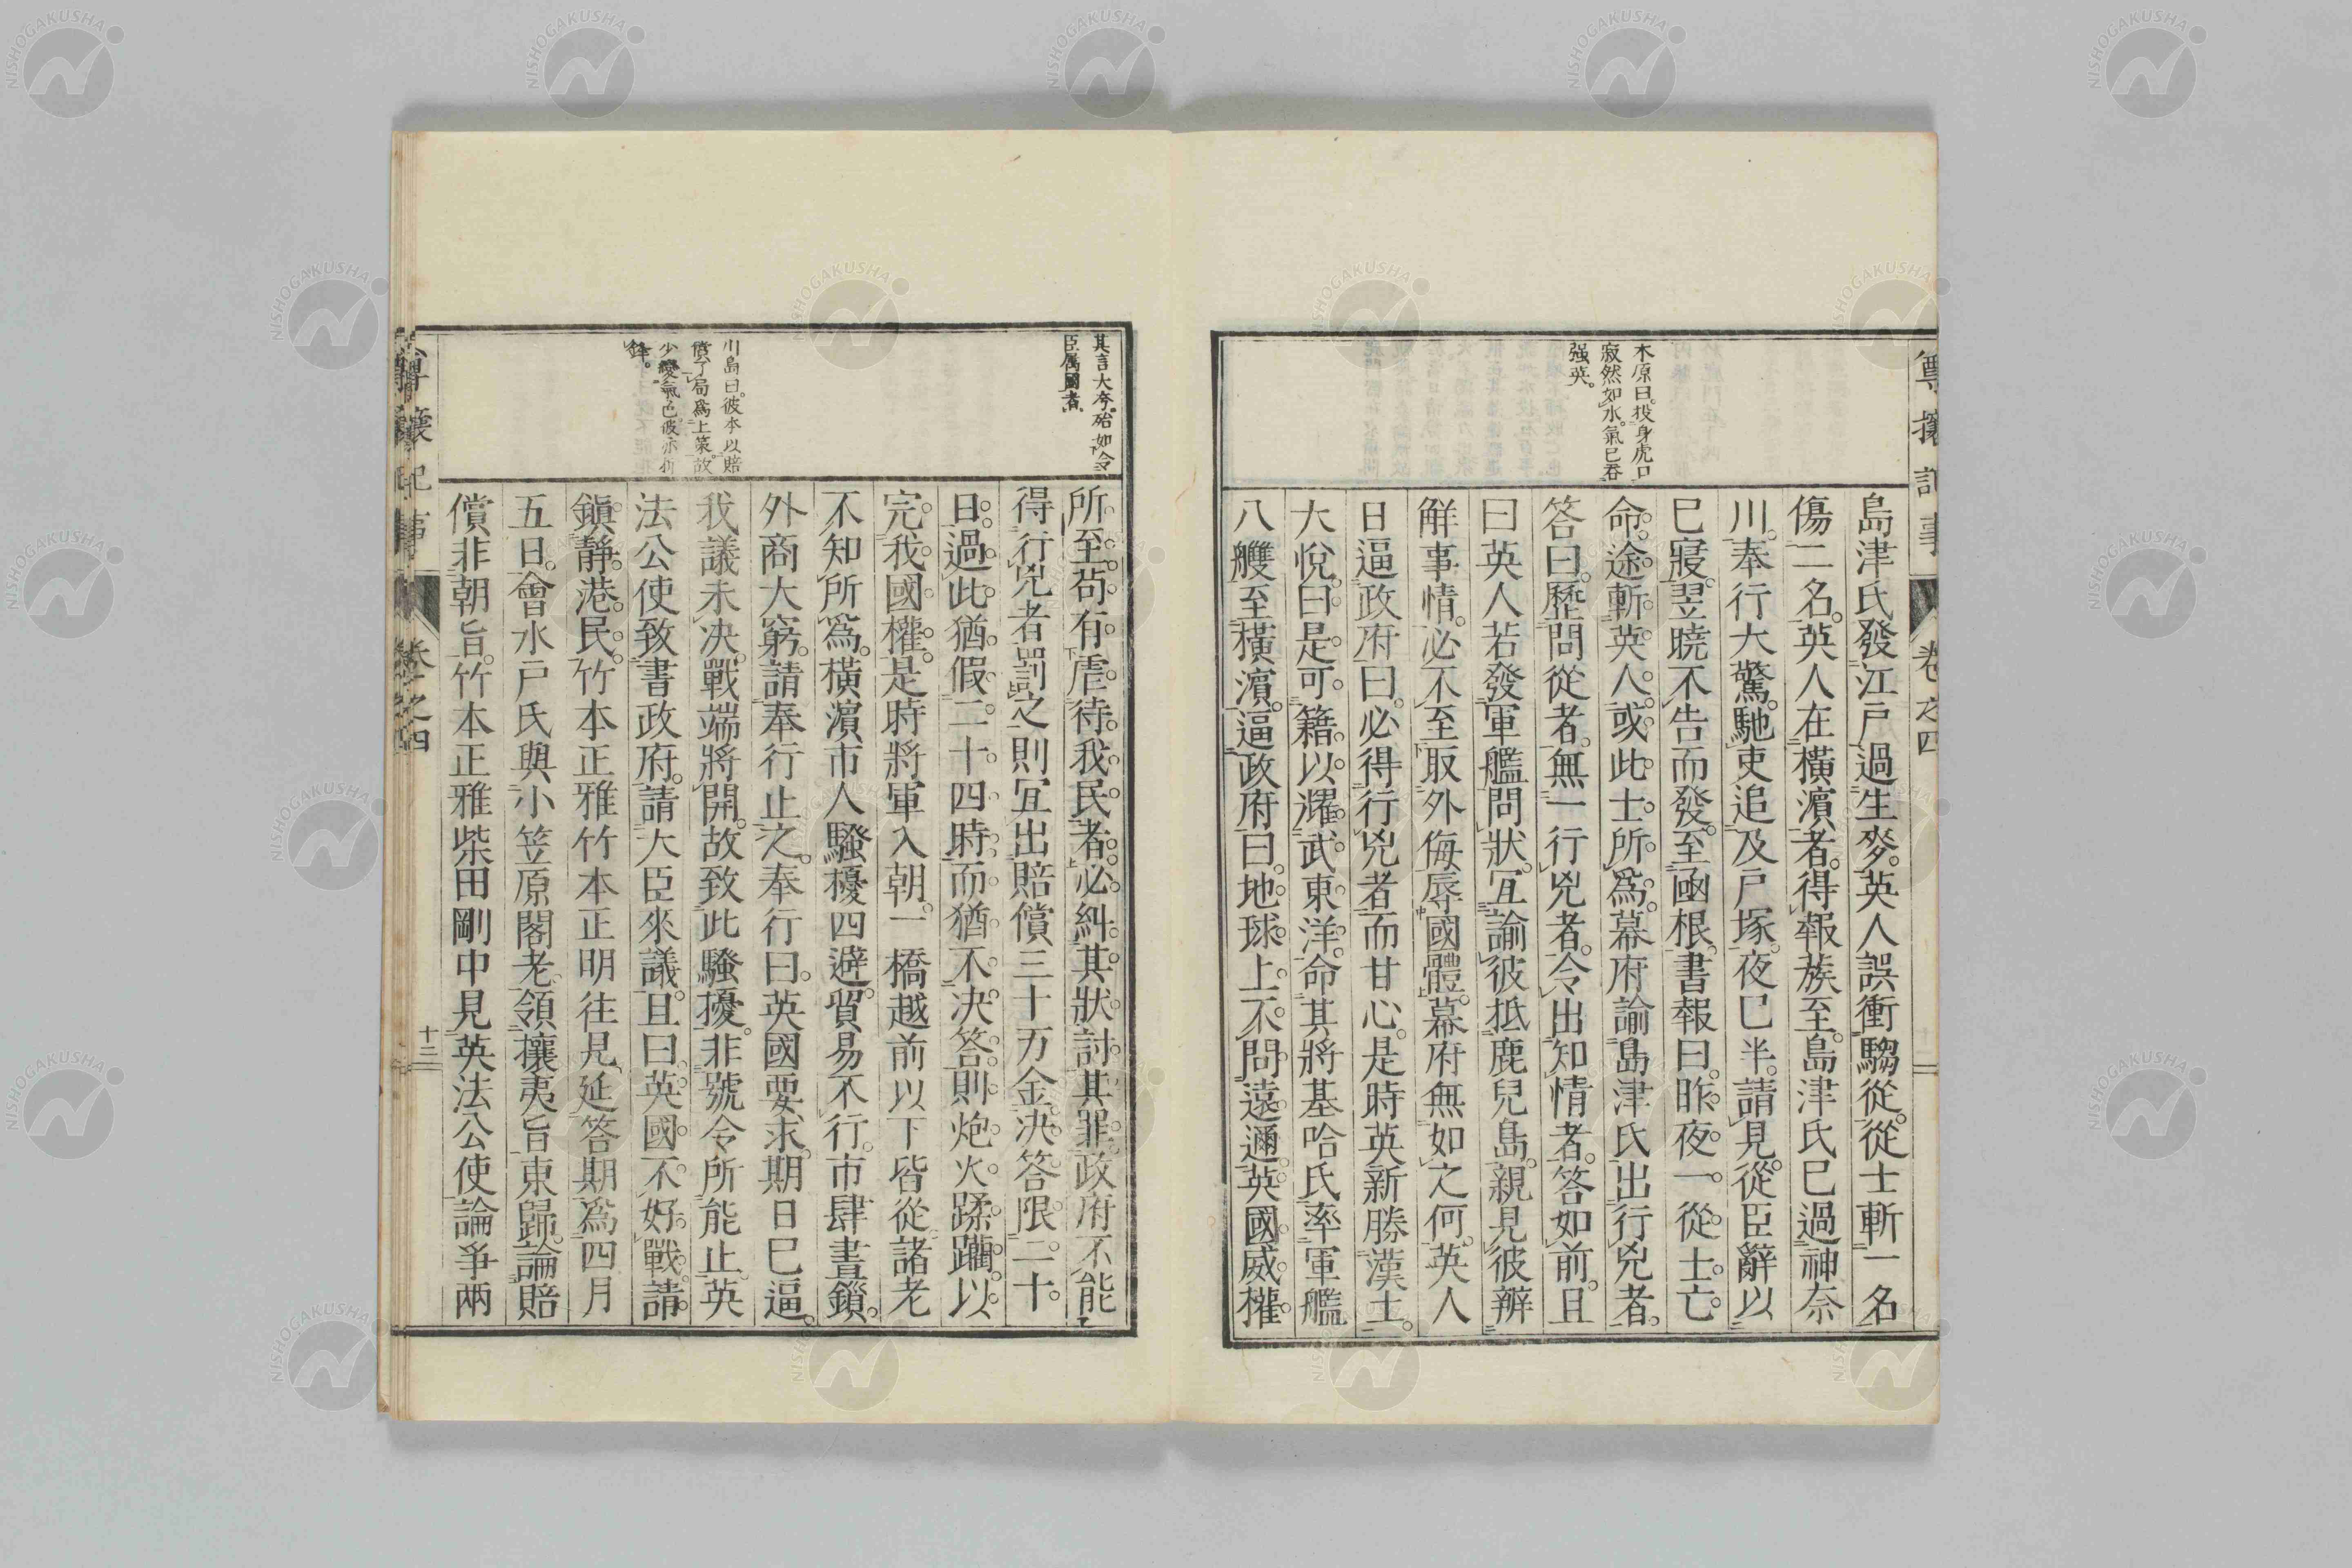 尊攘記事
卷之四
十二
木原曰。投身虎口
寂然如水。氣已吞
强英。
島津氏發江戸過生麥。英人誤衝騶從。從士斬一名
傷二名。英人在橫濱者。得報族至。島津氏已過神奈
川。奉行大驚。馳吏追及戸塚。夜已半。請見。從臣辭以
已寢。翌曉不告而發。至凾根。書報曰。昨夜。一從士亡
命。途斬英人。或此士所爲。幕府諭島津氏出行兇者。
答曰。歷問從者。無一行兇者。令出知情者。答如前。且
曰英人若發軍艦問狀。冝諭彼抵鹿兒島。親見彼辨
觧事情。必不至取外侮辱國體。幕府無如之何。英人
日逼政府曰。必得行兇者而甘心。是時英新勝漢土。
大悅。曰。是可籍以燿武東洋。命其將基哈氏率軍艦
八艭至橫濱。逼政府曰。地球上。不問遠邇。英國威權。
其言大夸。殆如令
臣属國者。
川島曰。彼本以賠
償了局爲上策。故
少變氣色。彼亦折
鋒。
所至。苟有虐待我民者。必糾其狀討其罪。政府不能
得行兇者罰之則冝出賠償三十万金。決答限二十
日。過此猶假二十四時。而猶不決答。則炮火蹂躪。以
完我國權。是時將軍入朝。一橋越前以下皆從。諸老
不知所爲。橫濱市人騷擾四避。貿易不行。市肆晝鎻。
外商大窮。請奉行止之。奉行曰。英國要求。期日已逼。
我議未决。戰端將開。故致此騷擾。非號令所能止。英
法公使致書政府。請大臣來議。且曰。英國不好戰。請
鎭靜港民。竹本正雅竹本正明往見。延答期爲四月
五日。會水戸氏與小笠原閣老。領攘夷旨東歸。論賠
償非朝旨。竹本正雅柴田剛中見英法公使論爭兩
尊攘記事
卷之四
十三
NISHOGAKUSHA